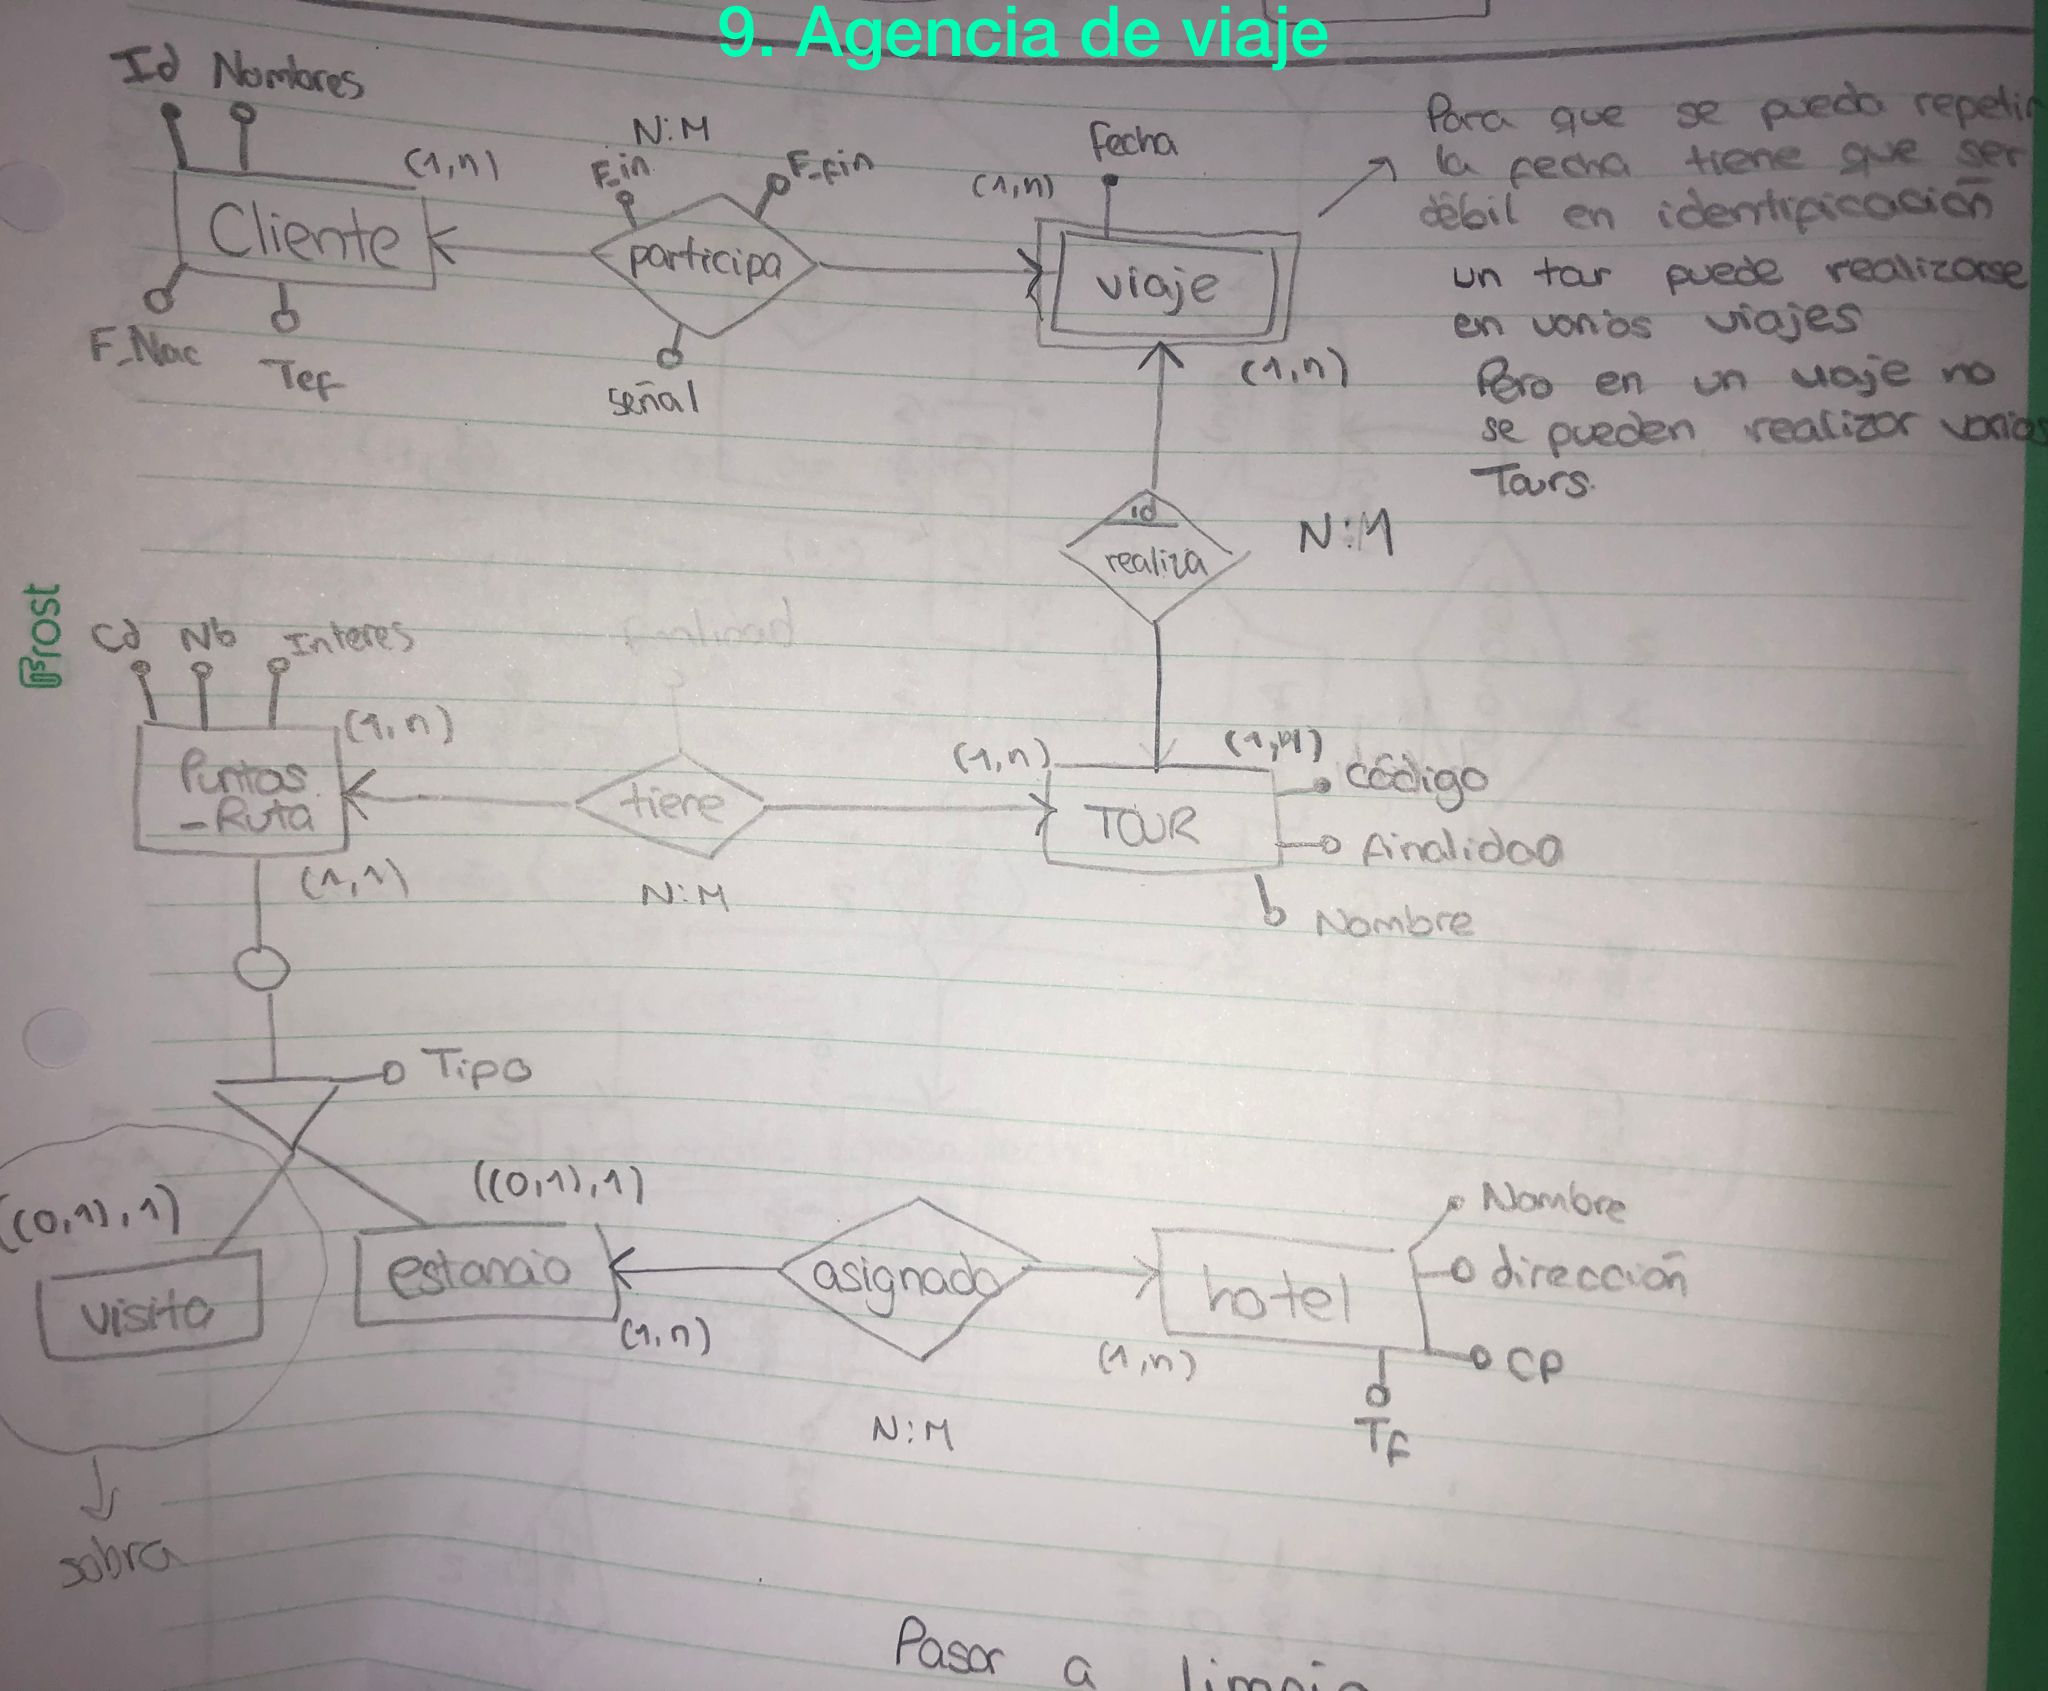 9. Agencia de viaje
Id Nombres
(1,n)
N:M
F_in
F_fin
Fecha
(1,n)
Cliente
participa
viaje
F_Nac
Tef
señal
(1,n)
Para que se pueda repetir
la fecha tiene que ser
débil en identificación
un tour puede realizarse
en varios viajes
Pero en un viaje no
se pueden realizar varios
Tours.
id
realiza
N:M
Frost
Cd Nb Interes
(1,n)
Puntos
-Ruta
(1,1)
tiene
N:M
(1,n)
TOUR
código
finalidad
Nombre
Tipo
((0,1),1)
((0,1),1)
visita
estancia
(1,n)
asignado
N:M
(1,n)
hotel
Nombre
dirección
CP
TF
sobra
Pasar a limpio